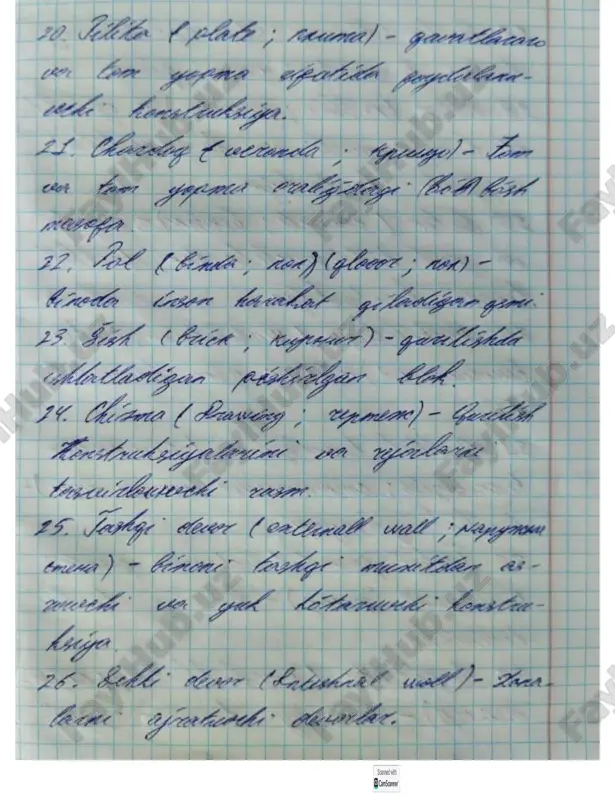 20. Plita ( plate ; плита) - qavatlararo
va tom yopma sifatida foydalanu-
vchi konstruksiya.
21. Chordoq ( veranda ; крыша) - Tom
va tom yopma oralig'idagi bo'sh
masofa
22. Pol (binda ; пол) (flooor ; пол) -
Binoda inson harakat qiladigan qsmi.
23. G'isht (brick ; кирпич) - qurilishda
ishlatladigan pishirlgan blok.
24. Chizma ( Drawing ; чертеж) - Qurilish
Konstruksiyalarini va rejalarni
tasvirlovchi rasm.
25. Tashqi devor (externall wall ; наружна
стена) - binoni tashqi muxitdan as-
rovchi va yuk ko'taruvchi konstru-
ksiya.
26. Ichki devor (Internal wall) - Xona-
larni ajratuvchi devorlar.
FayiHub.uz
Scanned with
CamScanner